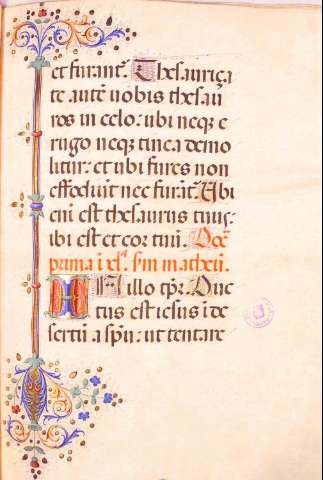 et furant᷑. Thesauriça
te autē uobis thesau
ros in celo: ubi neqꝫ e
rugo neqꝫ tinea demo
litur: et ubi fures non
effodiūt nec furāt᷑. Ubi
eni᷑ est thesaurus tuus:
ibi est et cor tuū. Doē
prima i xlᵃ. sm̄ matheū.
IN illo tp̄r. Duc
tus est iesus i de
sertū a spū: ut tentare